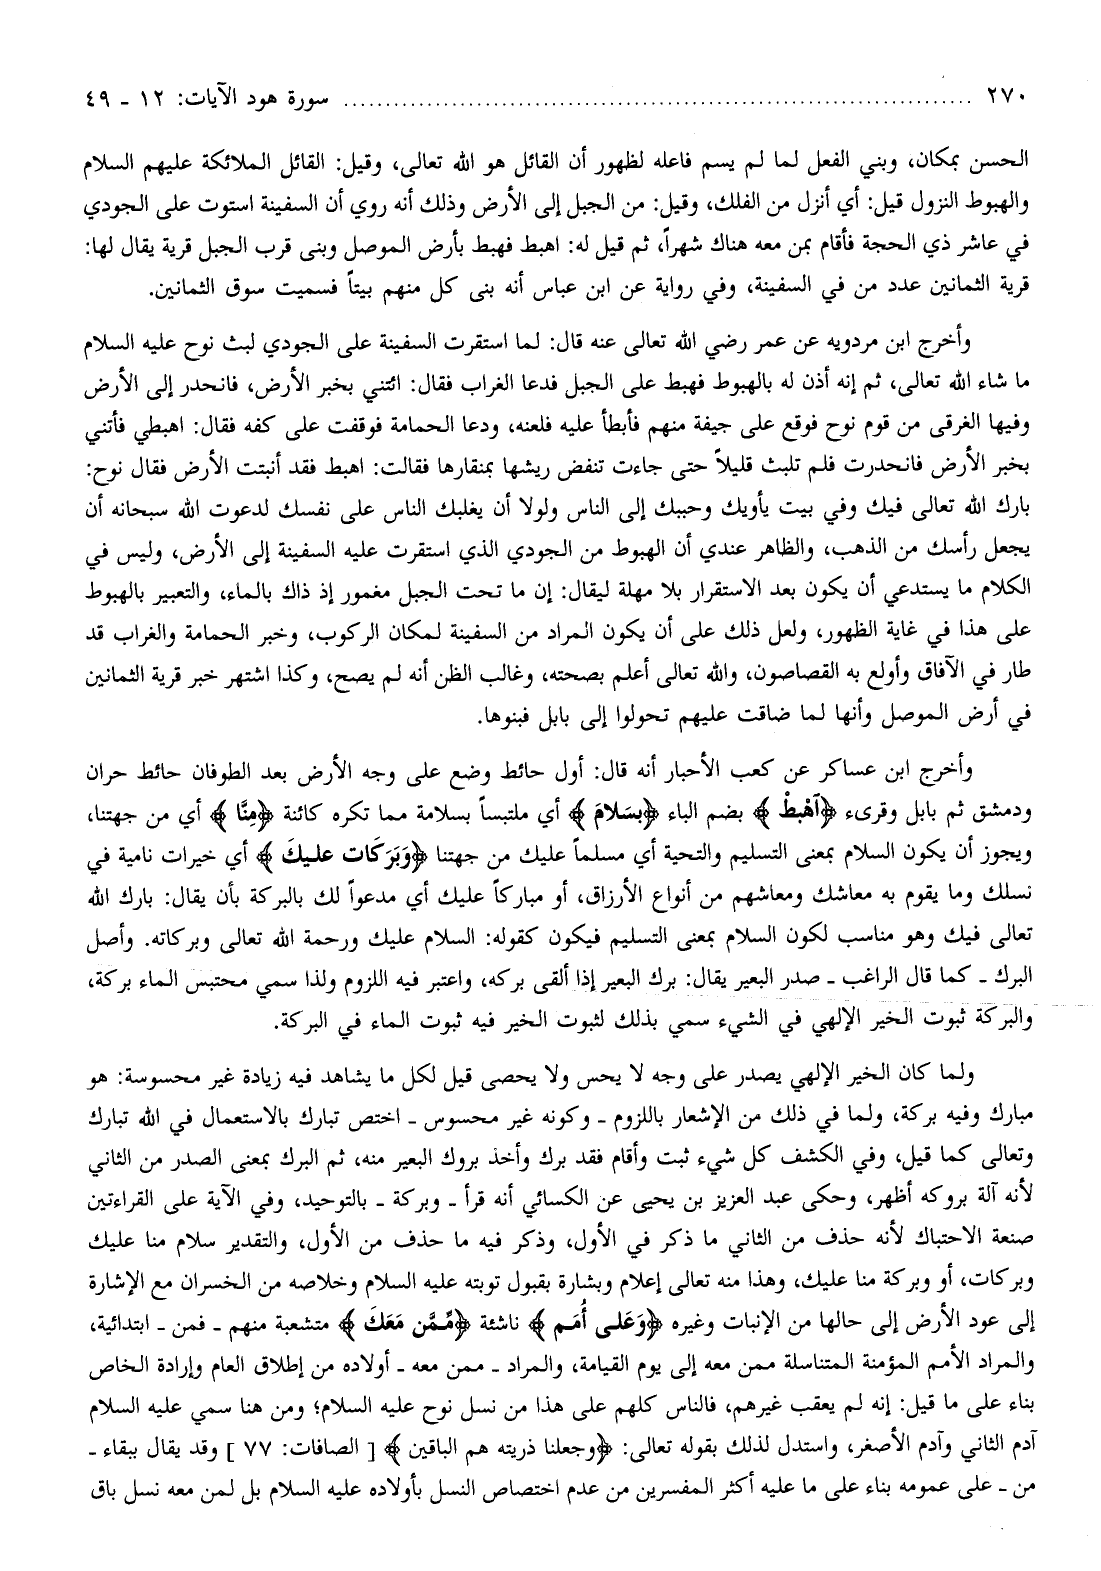 ٢٧٠ ........................................................................ سورة هود الآيات: ١٢ - ٤٩
الحسن بمكان، وبني الفعل لما لم يسم فاعله لظهور أن القائل هو الله تعالى، وقيل: القائل الملائكة عليهم السلام
والهبوط النزول قيل: أي أنزل من الفلك، وقيل: من الجبل إلى الأرض وذلك أنه روي أن السفينة استوت على الجودي
في عاشر ذي الحجة فأقام بمن معه هناك شهراً، ثم قيل له: اهبط فهبط بأرض الموصل وبنى قرب الجبل قرية يقال لها:
قرية الثمانين عدد من في السفينة، وفي رواية عن ابن عباس أنه بنى كل منهم بيتاً فسميت سوق الثمانين.
وأخرج ابن مردويه عن عمر رضي الله تعالى عنه قال: لما استقرت السفينة على الجودي لبث نوح عليه السلام
ما شاء الله تعالى، ثم إنه أذن له بالهبوط فهبط على الجبل فدعا الغراب فقال: ائتني بخبر الأرض، فانحدر إلى الأرض
وفيها الغرقى من قوم نوح فوقع على جيفة منهم فأبطأ عليه فلعنه، ودعا الحمامة فوقفت على كفه فقال: اهبطي فأتني
بخبر الأرض فانحدرت فلم تلبث قليلاً حتى جاءت تنفض ريشها بمنقارها فقالت: اهبط فقد أنبتت الأرض فقال نوح:
بارك الله تعالى فيك وفي بيت يأويك وحببك إلى الناس ولولا أن يغلبك الناس على نفسك لدعوت الله سبحانه أن
يجعل رأسك من الذهب، والظاهر عندي أن الهبوط من الجودي الذي استقرت عليه السفينة إلى الأرض، وليس في
الكلام ما يستدعي أن يكون بعد الاستقرار بلا مهلة ليقال: إن ما تحت الجبل مغمور إذ ذاك بالماء، والتعبير بالهبوط
على هذا في غاية الظهور، ولعل ذلك على أن يكون المراد من السفينة لمكان الركوب، وخبر الحمامة والغراب قد
طار في الآفاق وأولع به القصاصون، والله تعالى أعلم بصحته، وغالب الظن أنه لم يصح، وكذا اشتهر خبر قرية الثمانين
في أرض الموصل وأنها لما ضاقت عليهم تحولوا إلى بابل فبنوها.
وأخرج ابن عساكر عن كعب الأحبار أنه قال: أول حائط وضع على وجه الأرض بعد الطوفان حائط حران
ودمشق ثم بابل وقرىء ﴿آهْبطْ﴾ بضم الباء ﴿بسَلامَ﴾ أي ملتبساً بسلامة مما تكره كائنة ﴿مِنَّا﴾ أي من جهتنا،
ويجوز أن يكون السلام بمعنى التسليم والتحية أي مسلماً عليك من جهتنا ﴿وَبَرَكَات عليكَ﴾ أي خيرات نامية في
نسلك وما يقوم به معاشك ومعاشهم من أنواع الأرزاق، أو مباركاً عليك أي مدعواً لك بالبركة بأن يقال: بارك الله
تعالى فيك وهو مناسب لكون السلام بمعنى التسليم فيكون كقوله: السلام عليك ورحمة الله تعالى وبركاته. وأصل
البرك ـ كما قال الراغب ـ صدر البعير يقال: برك البعير إذا ألقى بركه، واعتبر فيه اللزوم ولذا سمي محتبس الماء بركة،
والبركة ثبوت الخير الإلهي في الشيء سمي بذلك لثبوت الخير فيه ثبوت الماء في البركة.
ولما كان الخير الإلهي يصدر على وجه لا يحس ولا يحصى قيل لكل ما يشاهد فيه زيادة غير محسوسة: هو
مبارك وفيه بركة، ولما في ذلك من الإشعار باللزوم ـ وكونه غير محسوس ـ اختص تبارك بالاستعمال في الله تبارك
وتعالى كما قيل، وفي الكشف كل شيء ثبت وأقام فقد برك وأخذ بروك البعير منه، ثم البرك بمعنى الصدر من الثاني
لأنه آلة بروكه أظهر، وحكى عبد العزيز بن يحيى عن الكسائي أنه قرأ ـ وبركة ـ بالتوحيد، وفي الآية على القراءتين
صنعة الاحتباك لأنه حذف من الثاني ما ذكر في الأول، وذكر فيه ما حذف من الأول، والتقدير سلام منا عليك
وبركات، أو وبركة منا عليك، وهذا منه تعالى إعلام وبشارة بقبول توبته عليه السلام وخلاصه من الخسران مع الإشارة
إلى عود الأرض إلى حالها من الإنبات وغيره ﴿وَعَلى أُمَم﴾ ناشئة ﴿مِّمَّن مَعَكَ﴾ متشعبة منهم ـ فمن ـ ابتدائية،
والمراد الأمم المؤمنة المتناسلة ممن معه إلى يوم القيامة، والمراد ـ ممن معه ـ أولاده من إطلاق العام وإرادة الخاص
بناء على ما قيل: إنه لم يعقب غيرهم، فالناس كلهم على هذا من نسل نوح عليه السلام؛ ومن هنا سمي عليه السلام
آدم الثاني وآدم الأصغر، واستدل لذلك بقوله تعالى: ﴿وجعلنا ذريته هم الباقين﴾ [ الصافات: ٧٧ ] وقد يقال ببقاء ـ
من ـ على عمومه بناء على ما عليه أكثر المفسرين من عدم اختصاص النسل بأولاده عليه السلام بل لمن معه نسل باق